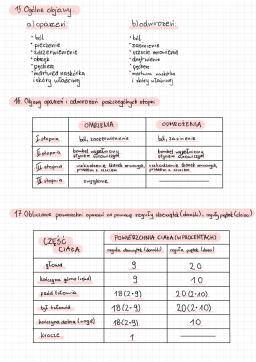 15. Ogólne objawy:
a) oparzeń:
b) odmrożeń:
• ból
• pieczenie
• zaczerwienienie
• obrzęk
• pęcherz
• martwica naskórka
i skóry właściwej
• ból
• zasinienie
• uczucie mrowienia
• drętwienie
• pęcherz
• martwica naskórka
i skóry właściwej
16. Objawy oparzeń i odmrożeń poszczególnych stopni
OPARZENIA
ODMROŻENIA
I stopnia
ból, zaczerwienienie
ból, zasinienie
II stopnia
bąbel wypełniony
płynem surowiczym
bąbel wypełniony
płynem surowiczym
III stopnia
uszkodzenie tkanek
uszkodzenie tkanek
IV stopnia
zwęglenie
17. Obliczanie powierzchni oparzeń za pomocą reguły dziewiątek (dorośli), reguły piątek (dzieci)
CZĘŚĆ
CIAŁA
POWIERZCHNIA CIAŁA (W PROCENTACH)
reguła dziewiątek (dorośli)
reguła piątek (dzieci)
głowa
9
20
kończyna górna (ręka)
9
10
przód tułowia
18 (2•9)
20 (2•10)
tył tułowia
18 (2•9)
20 (2•10)
kończyna dolna (noga)
18 (2•9)
10
krocze
1